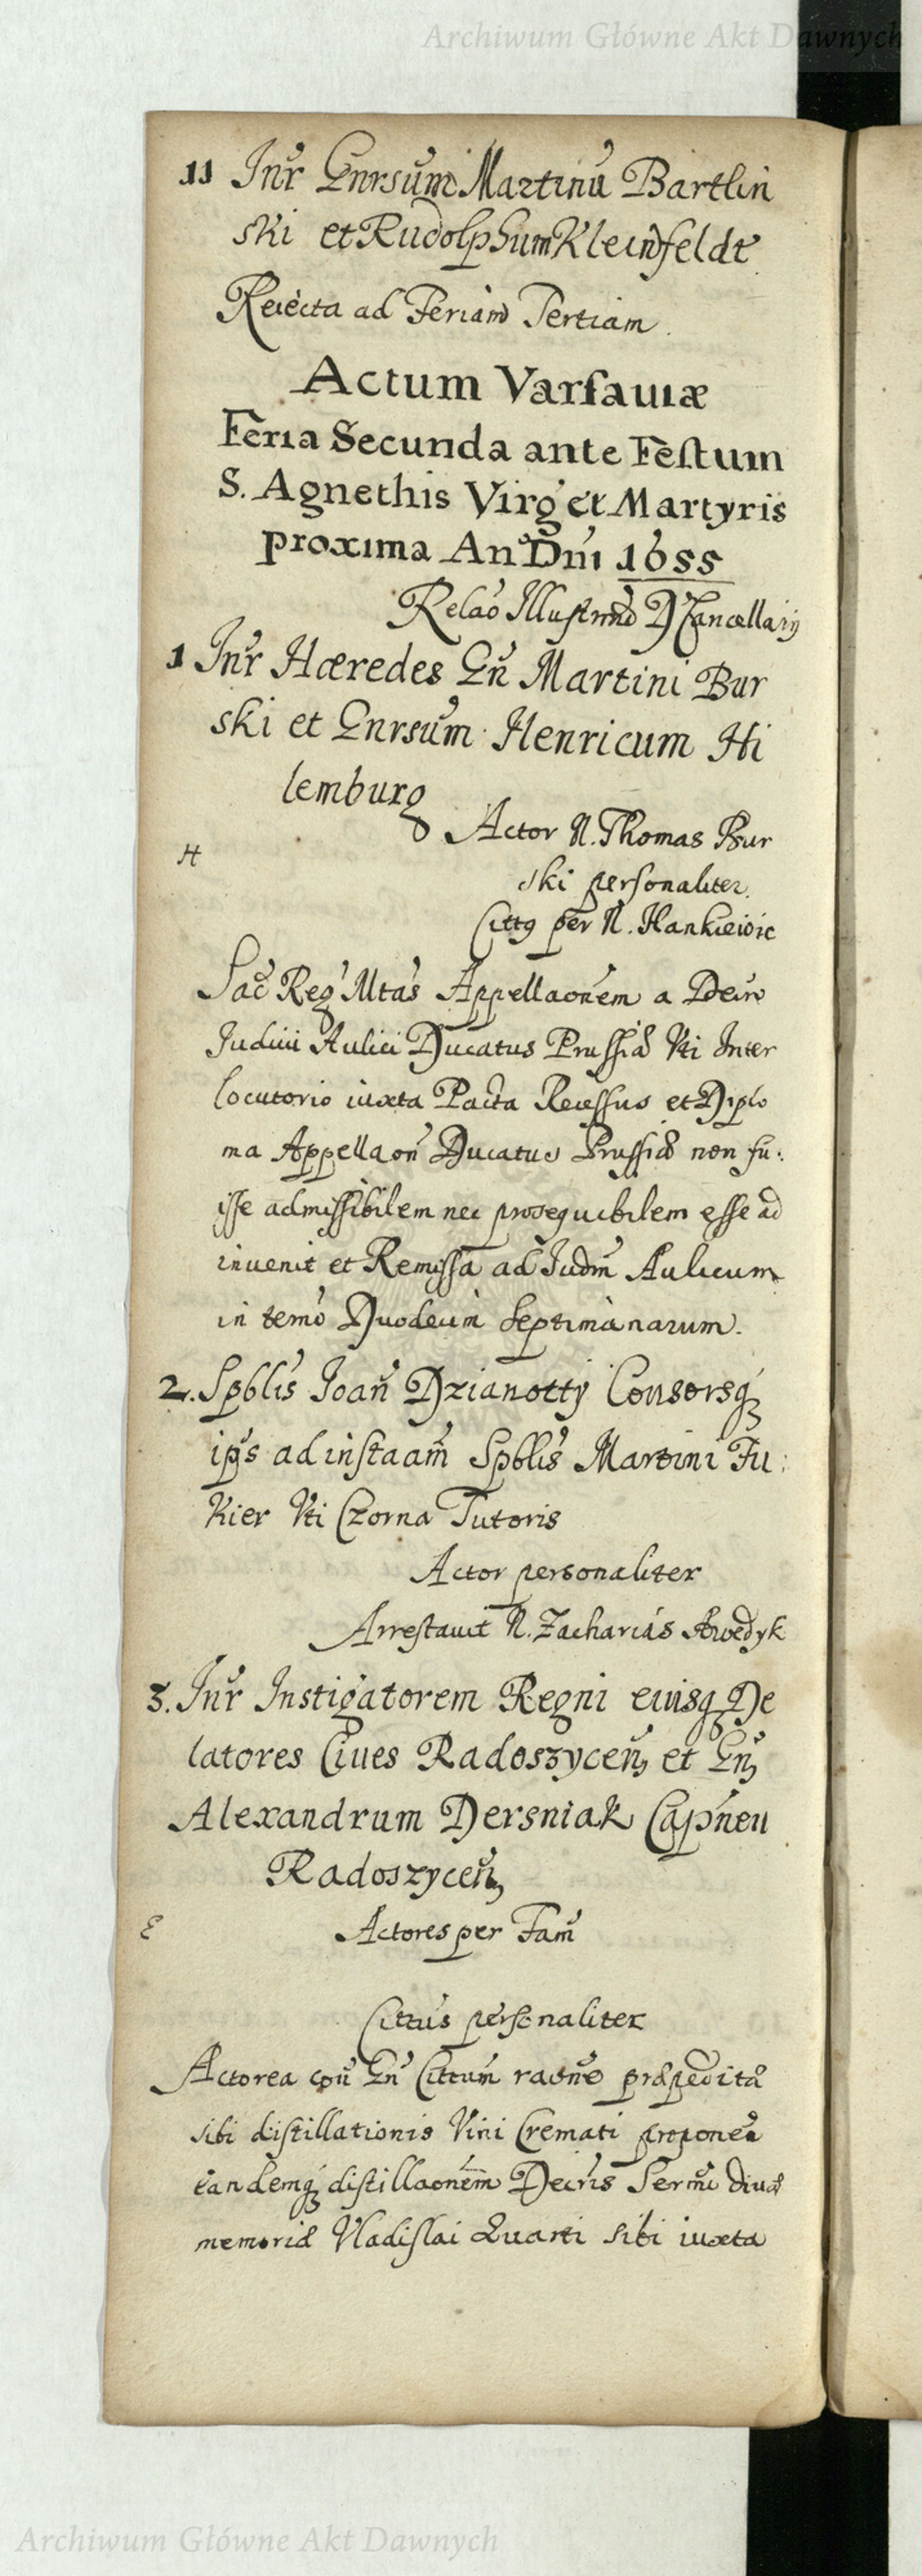 Archiwum Główne Akt Dawnych
11 Inr̃ Gnrsum̃ Martinũ Bartlin
ski et Rudolphum Kleinfeldt
Reiecta ad Feriam Tertiam.
Actum Varsauiæ
Feria Secunda ante Festum
S. Agnethis Virg et Martyris
proxima An Dni 1655
Relao Illustrmi D Cancellarij
1 Inr̃ Hæredes Gñ Martini Bur
ski et Gnrsum̃ Henricum Hi
lemburg
Actor N. Thomas Bur
H
ski personaliter.
Citt9 per N. Hankiewic
Sac̃ Reg Mtas Appellaonem a Decro
Iudicii Aulici Ducatus Prussiæ Vti Inter
locutorio iuxta Pacta Recessus et Diplo
ma Appellaoñ Ducatus Prussiæ non fu:
isse admissibilem nec prosequibilem esse ad
inuenit et Remissa ad Iudm̃ Aulicum
in termo Duodecim Septimanarum.
2. Spblis Ioañ Dzianotty Consorsq
ips ad instaam̃ Spblis Martini Fu:
kier Vti Czorna Tutoris
Actor personaliter
Arrestauit N. Zacharias
3. Inr̃ Instigatorem Regni eiusq De
latores Ciues Radoszyceñ et Gñ
Alexandrum Dersniak Capneu
Radoszyceñ
E
Actores per Fam̃
Cittus personaliter
Actorea coñ Gñ Cittum raone præpedita
sibi distillationis Vini Cremati propone
tandemq distillaonem Decris Sermi diuæ
memoriæ Vladislai Quarti sibi iuxta
Archiwum Główne Akt Dawnych